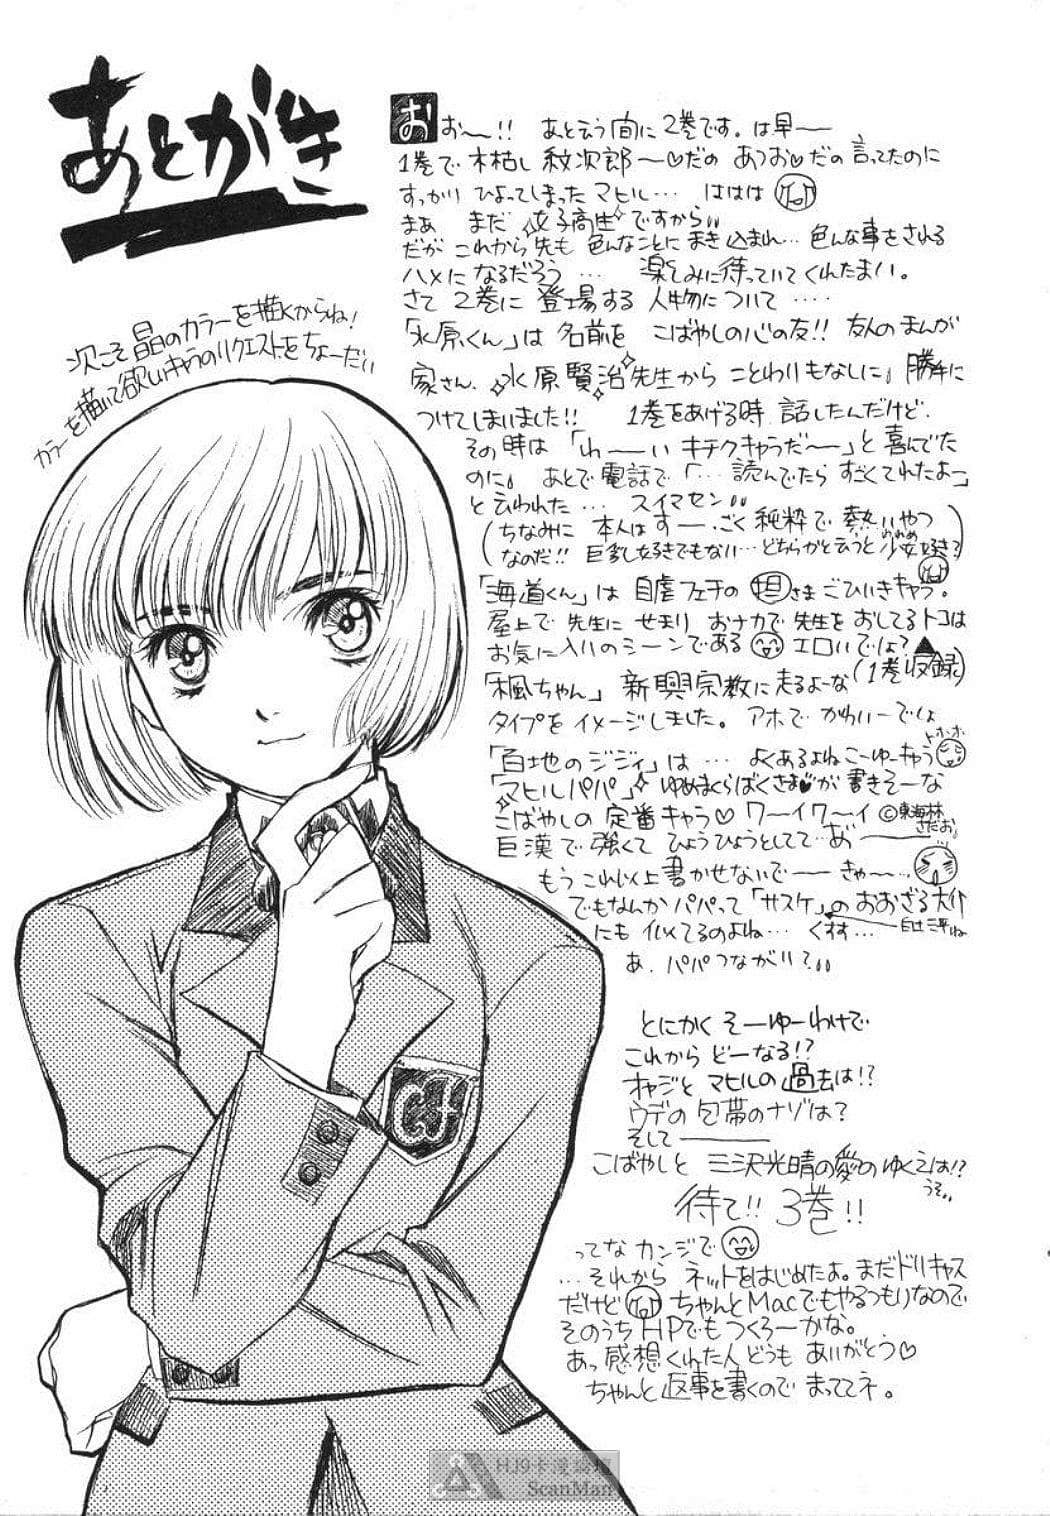 あとがき
次こそ晶のカラーを描くからね!
カラーを描いて欲しいキャラのリクエストをちょーだい
おお〜!! あと云う間に2巻です。は早ー
1巻で木枯し紋次郎〜♡だの あつお♡だの言ってたのに
すっかり ひよってしまった マヒル… ははは
まあ まだ 女子高生 ですから
だが これから先も 色んなことに まき込まれ… 色んな事をされる
ハメになるだろう … 楽しみに待っていてくれたまい。
さて 2巻に 登場する 人物について ‥‥
「氷原くん」は 名前を こばやしの心の友!! 友人のまんが
家さん 氷原賢治先生から ことわりもなしに 勝手に
つけてしまいました!! 1巻をあげる時 話したんだけど、
その時は 「わーーい キチクキャラだ〜」と喜んでた
のに あとで電話で「…読んでたら すごくてれたよ」
と云われた… スイマセン
(ちなみに 本人はすーごく 純粋で 熱いやつ
なのだ!! 巨乳好きでもない…どちらかと云うと少女好き?)
「海道くん」は 自虐フェチの 担さまごひいきキャラ。
屋上で 先生に せまり おナカで 先生を おしてるトコは
お気に入りのシーンである エロいでしょ?
(1巻収録)
「楓ちゃん」 新興宗教に走るよーな
タイプをイメージしました。アホで かわいーでしょ
トホホ
「百地のジジィ」は … よくあるよね こーゆーキャラ
「マヒルパパ」 ゆめまくらばくさま♥が 書きそーな
こばやしの 定番キャラ♡ ワーイワーイ ©東海林さだお
巨漢で 強くて ひょうひょうとしてて…お
もう これ以上 書かせないで— きゃ〜…
でもなんか パパって「サスケ」の おおざる大介
にも 似てるのよね… くすす… 白土三平ね
あ、パパつながり?
とにかく そーゆーわけで
これから どーなる!?
オヤジと マヒルの 過去は!?
ウデの 包帯のナゾは?
そして ———
こばやしと 三沢光晴の愛の ゆくえは!?
うそ
待て!! 3巻!!
ってな カンジで
…それから ネットをはじめたよ。まだドリキャス
だけど ちゃんとMacでもやるつもりなので
そのうちHPでもつくろーかな。
あっ 感想くれた人 どうも ありがとう♡
ちゃんと返事を書くので まっててネ。
HJ9卡漫論壇
ScanMan